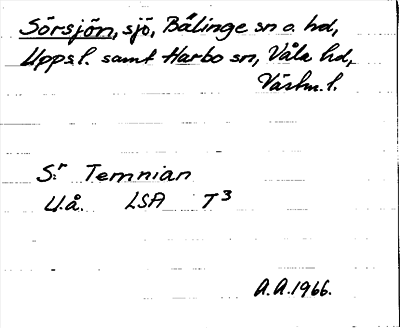 Sörsjön, sjö, Bälinge sn o. hd,
Upps.l. samt Harbo sn, Våla hd,
Västm. l.
S:r Temnian
U.å. LSA T3
A.A. 1966.